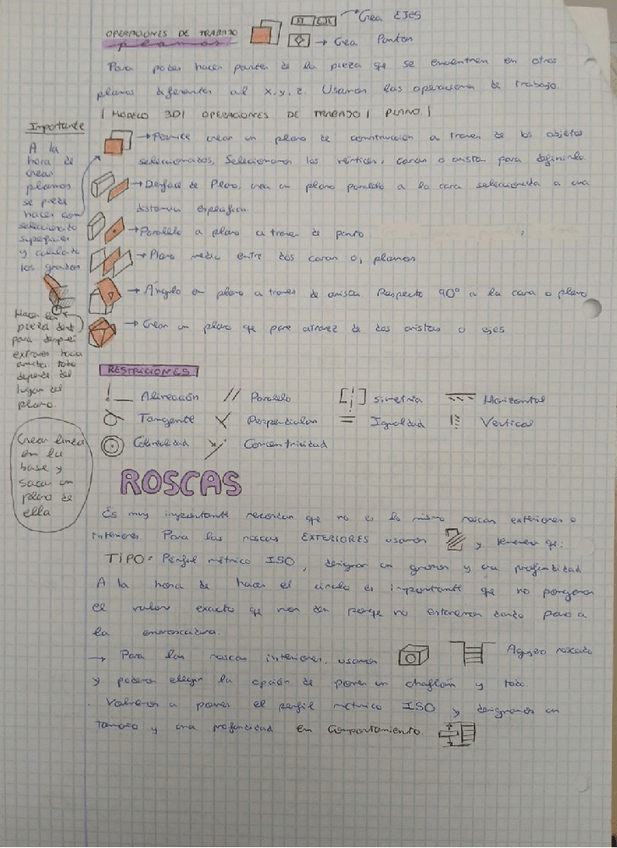 OPERACIONES DE TRABAJO
planos
→ Crea EJES
→ Crea Puntos
Para poder hacer partes de la pieza que se encuentren en otros
planos diferentes al x,y,z. Usamos las operaciones de trabajo.
| MODELO 3D | OPERACIONES DE TRABAJO | PLANO |
Importante
A la
hora de
crear
planos
se puede
hacer con
seleccionando
superficies
y
los grados
→ Permite crear un plano de construcción a traves de los objetos
seleccionados, Seleccionamos los vértices, caras o aristas para definirlo
→ Desfase de Plano, crea un plano paralelo a la cara seleccionada a una
distancia especifica
→ Paralelo a plano a traves de punto
→ Plano medio entre dos caras o, planos
→ Ángulo en plano a traves de arista Respecto 90° a la cara o plano
→ Crear un plano que pase atravez de dos aristas o ejes
pieza
para despues
extruir hacia
todo
depende del
lugar del
plano.
Crear linea
en la
base y
sacar un
plano de
ella
RESTRICIONES
Alineación // Paralelo Simetria Horizontal
Tangente Perpendicular = Igualdad Vertical
Colinealidad Concentricidad
ROSCAS
Es muy importante recordar que no es lo mismo roscas exteriores o
interiores. Para las roscas EXTERIORES usamos y tenemos que:
TIPO: Perfil métrico ISO, designar un grosor y una profundidad
A la hora de hacer el circulo es importante que no pongamos
el valor exacto que nos dan porque no estaremos dando paso a
la enroscadura.
→ Para las roscas interiores, usamos Agujero roscado
y podemos elegir la opción de poner un chaflan y todo.
. Volvemos a poner el perfil métrico ISO y designamos un
tamaño y una profundidad en Comportamiento